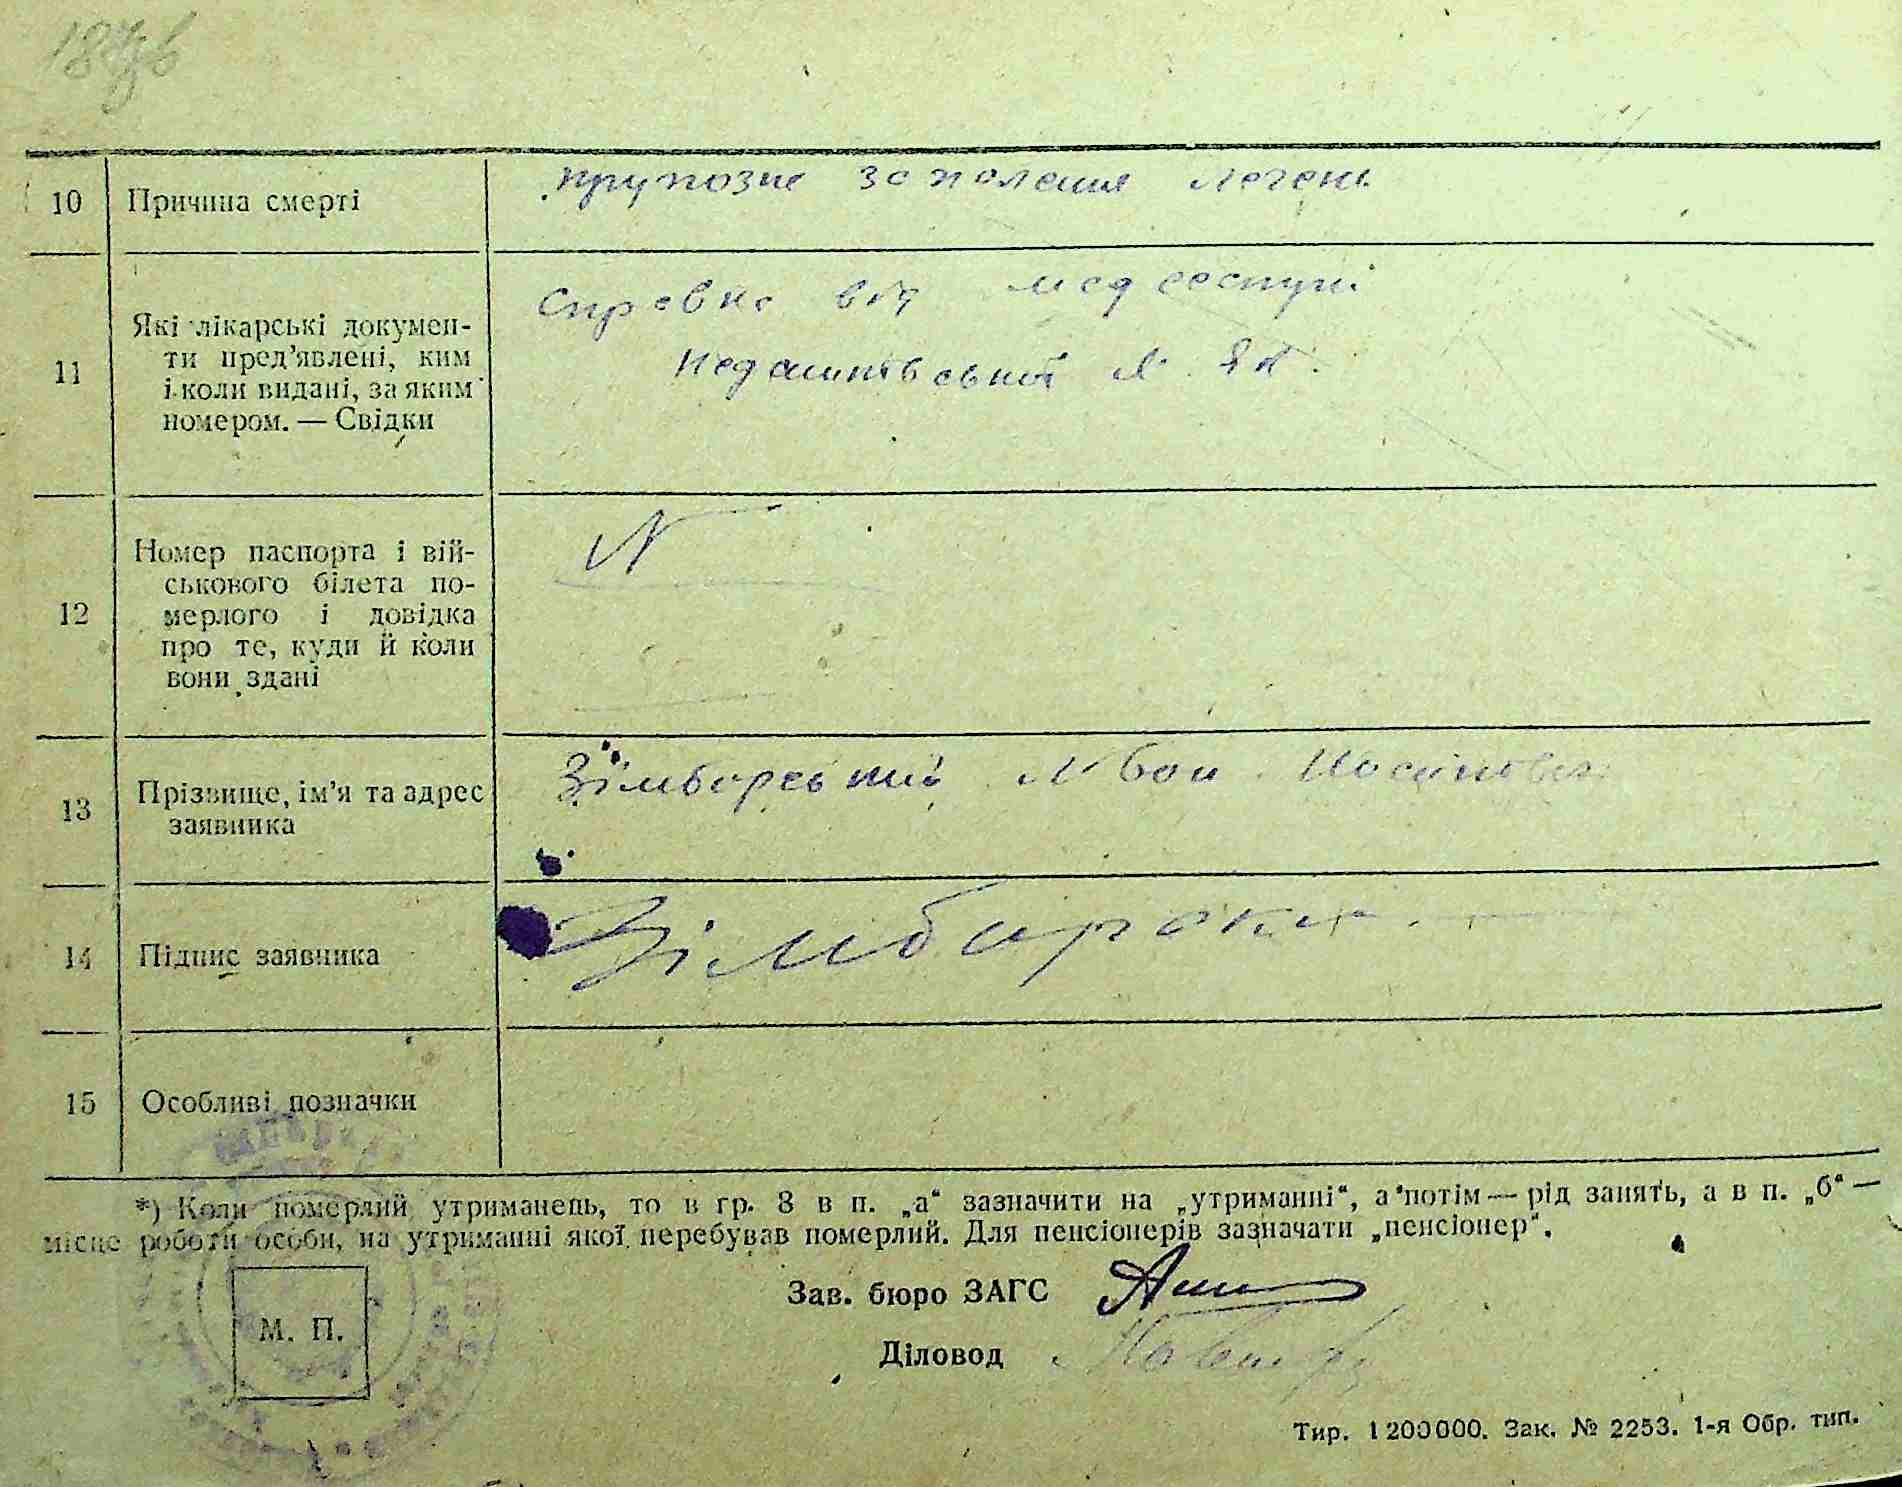 10 Причина смерті крупозне запалення легень
11 Які лікарські докумен-
ти пред’явлені, ким
і коли видані, за яким
номером. — Свідки
Справка від медсестри
12 Номер паспорта і вій-
ськового білета по-
мерлого і довідка
про те, куди й коли
вони здані
N
13 Прізвище, ім’я та адрес
заявника
Зімборський
14 Підпис заявника
15 Особливі позначки
*) Коли померлий утриманець, то в гр. 8 в п. „а“ зазначити на „утриманні“, а потім — рід занять, а в п. „б“ —
місце роботи особи, на утриманні якої перебував померлий. Для пенсіонерів зазначати „пенсіонер“.
Зав. бюро ЗАГС
М. П.
Діловод
Тир. 1200000. Зак. № 2253. 1-я Обр. тип.